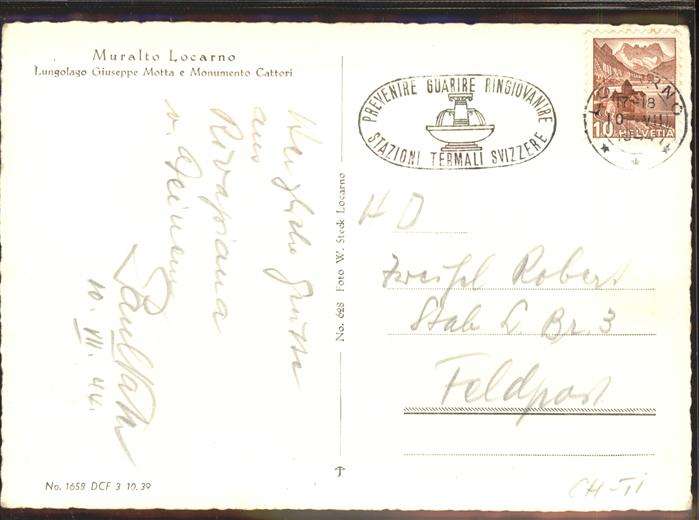 Muralto Locarno
Lungolago Giuseppe Motta e Monumento Cattori
PREVENIRE GUARIRE RINGIOVANIRE
STAZIONI TERMALI SVIZZERE
17-18
10 VIII
10 HELVETIA
Herzliche Grüsse
aus
Rivapiana
v. Deinem
10. VIII. 44.
No. 628 Foto W. Steck Locarno
HD
Zweifel Robert
Stab L. Br. 3
Feldpost
No. 1658 DCF 3 10.39
CH-TI